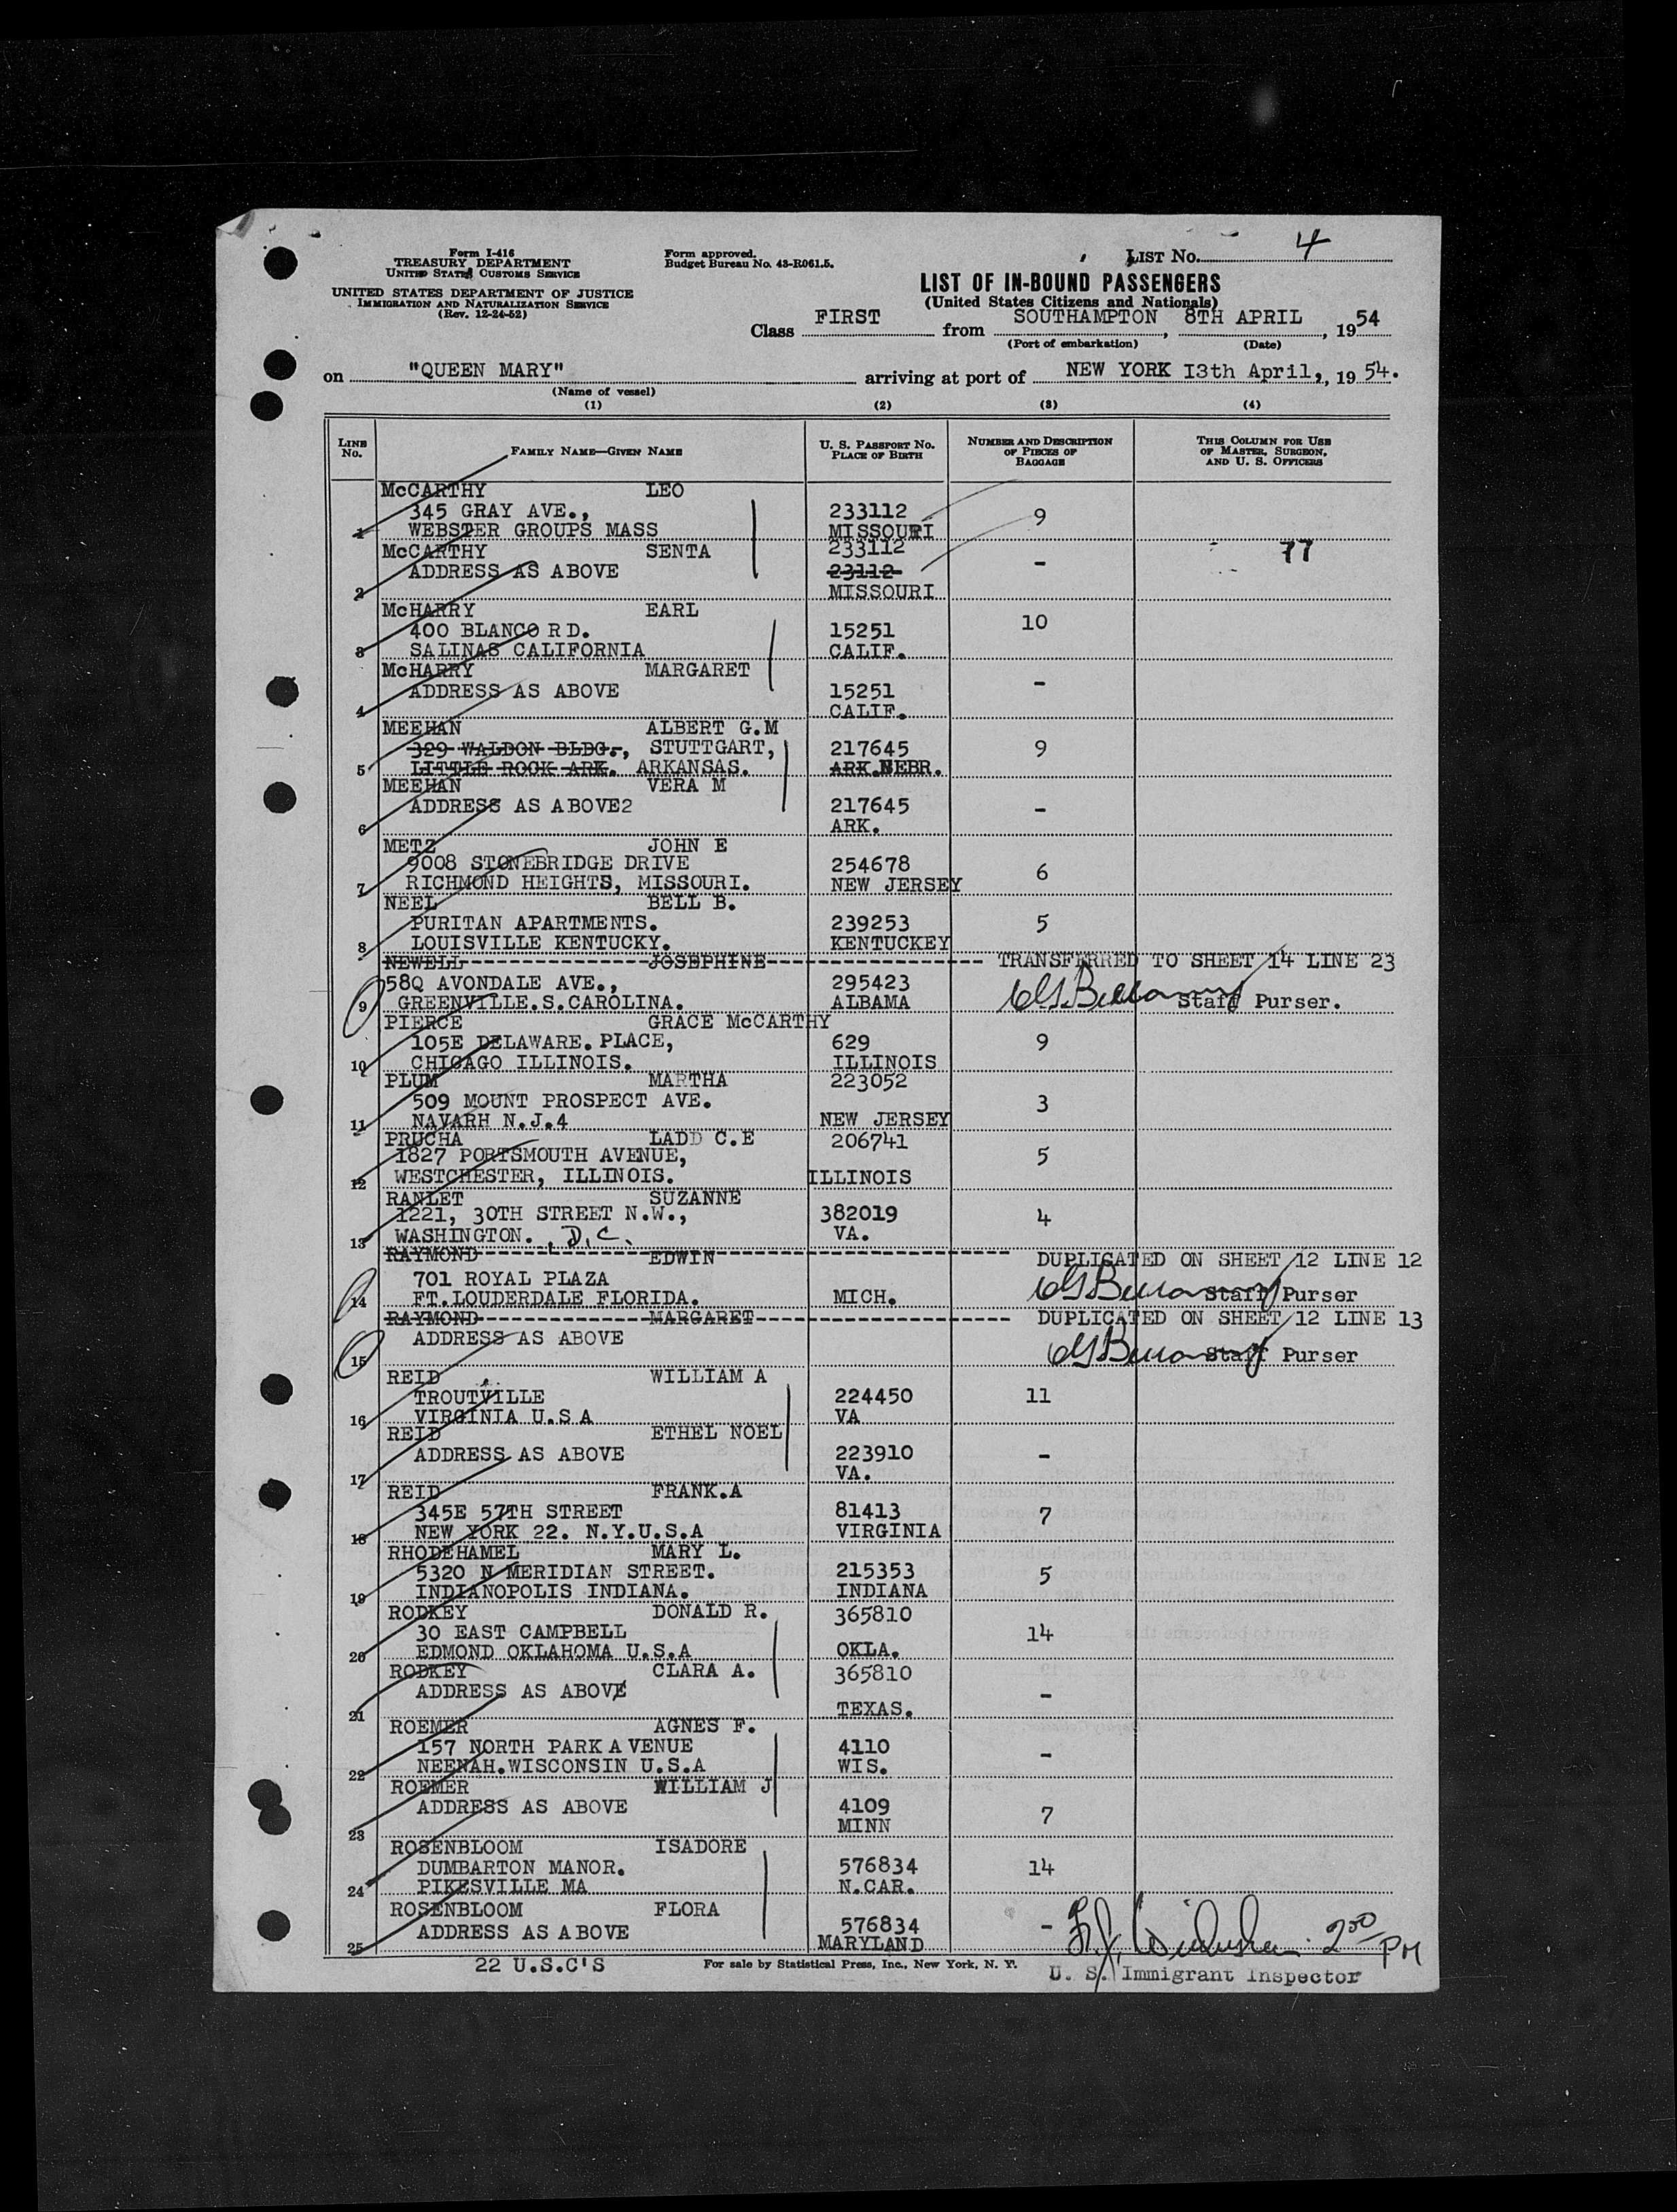 Form I-416
TREASURY DEPARTMENT
UNITED STATES CUSTOMS SERVICE
UNITED STATES DEPARTMENT OF JUSTICE
IMMIGRATION AND NATURALIZATION SERVICE
(Rev. 12-24-52)
Form approved.
Budget Bureau No. 43-R061.5.
LIST No. 4
LIST OF IN-BOUND PASSENGERS
(United States Citizens and Nationals)
Class FIRST from SOUTHAMPTON, 8TH APRIL, 1954
(Port of embarkation) (Date)
on "QUEEN MARY" arriving at port of NEW YORK I3th April,, 1954.
(Name of vessel)
(1) (2) (3) (4)
LINE No. FAMILY NAME—GIVEN NAME U. S. PASSPORT No. PLACE OF BIRTH NUMBER AND DESCRIPTION OF PIECES OF BAGGAGE THIS COLUMN FOR USE OF MASTER, SURGEON, AND U. S. OFFICERS
McCARTHY LEO
345 GRAY AVE., 233112 9
1 WEBSTER GROUPS MASS MISSOURI
McCARTHY SENTA 233112 77
ADDRESS AS ABOVE 23112 -
2 MISSOURI
McHARRY EARL
400 BLANCO RD. 15251 10
3 SALINAS CALIFORNIA CALIF.
McHARRY MARGARET
ADDRESS AS ABOVE 15251 -
4 CALIF.
MEEHAN ALBERT G.M
329 WALDON BLDG., STUTTGART, 217645 9
5 LITTLE ROCK ARK. ARKANSAS. ARK.NEBR.
MEEHAN VERA M
ADDRESS AS ABOVE2 217645 -
6 ARK.
METZ JOHN E
9008 STONEBRIDGE DRIVE 254678 6
7 RICHMOND HEIGHTS, MISSOURI. NEW JERSEY
NEEL BELL B.
PURITAN APARTMENTS. 239253 5
8 LOUISVILLE KENTUCKY. KENTUCKEY
NEWELL---------------JOSEPHINE------------------ TRANSFERRED TO SHEET 14 LINE 23
58Q AVONDALE AVE., 295423
9 GREENVILLE.S.CAROLINA. ALBAMA Staff Purser.
PIERCE GRACE McCARTHY
105E DELAWARE. PLACE, 629 9
10 CHICAGO ILLINOIS. ILLINOIS
PLUM MARTHA 223052
509 MOUNT PROSPECT AVE. 3
11 NAVARH N.J.4 NEW JERSEY
PRUCHA LADD C.E 206741
1827 PORTSMOUTH AVENUE, 5
12 WESTCHESTER, ILLINOIS. ILLINOIS
RANLET SUZANNE
1221, 30TH STREET N.W., 382019 4
13 WASHINGTON. , D.C. VA.
RAYMOND---------------EDWIN-------------------- DUPLICATED ON SHEET 12 LINE 12
701 ROYAL PLAZA
14 FT.LOUDERDALE FLORIDA. MICH. Staff Purser
RAYMOND---------------MARGARET------------------ DUPLICATED ON SHEET 12 LINE 13
ADDRESS AS ABOVE
15 Staff Purser
REID WILLIAM A
TROUTVILLE 224450 11
16 VIRGINIA U.S.A VA
REID ETHEL NOEL
ADDRESS AS ABOVE 223910 -
17 VA.
REID FRANK.A
345E 57TH STREET 81413 7
18 NEW YORK 22. N.Y.U.S.A VIRGINIA
RHODEHAMEL MARY L.
5320 N MERIDIAN STREET. 215353 5
19 INDIANOPOLIS INDIANA. INDIANA
RODKEY DONALD R. 365810
30 EAST CAMPBELL 14
20 EDMOND OKLAHOMA U.S.A OKLA.
RODKEY CLARA A. 365810
ADDRESS AS ABOVE -
21 TEXAS.
ROEMER AGNES F.
157 NORTH PARK AVENUE 4110 -
22 NEENAH.WISCONSIN U.S.A WIS.
ROEMER WILLIAM J
ADDRESS AS ABOVE 4109 7
23 MINN
ROSENBLOOM ISADORE
DUMBARTON MANOR. 576834 14
24 PIKESVILLE MA N.CAR.
ROSENBLOOM FLORA
ADDRESS AS ABOVE 576834 -
25 MARYLAND 2 00 PM
22 U.S.C'S For sale by Statistical Press, Inc., New York, N. Y. U. S. Immigrant Inspector